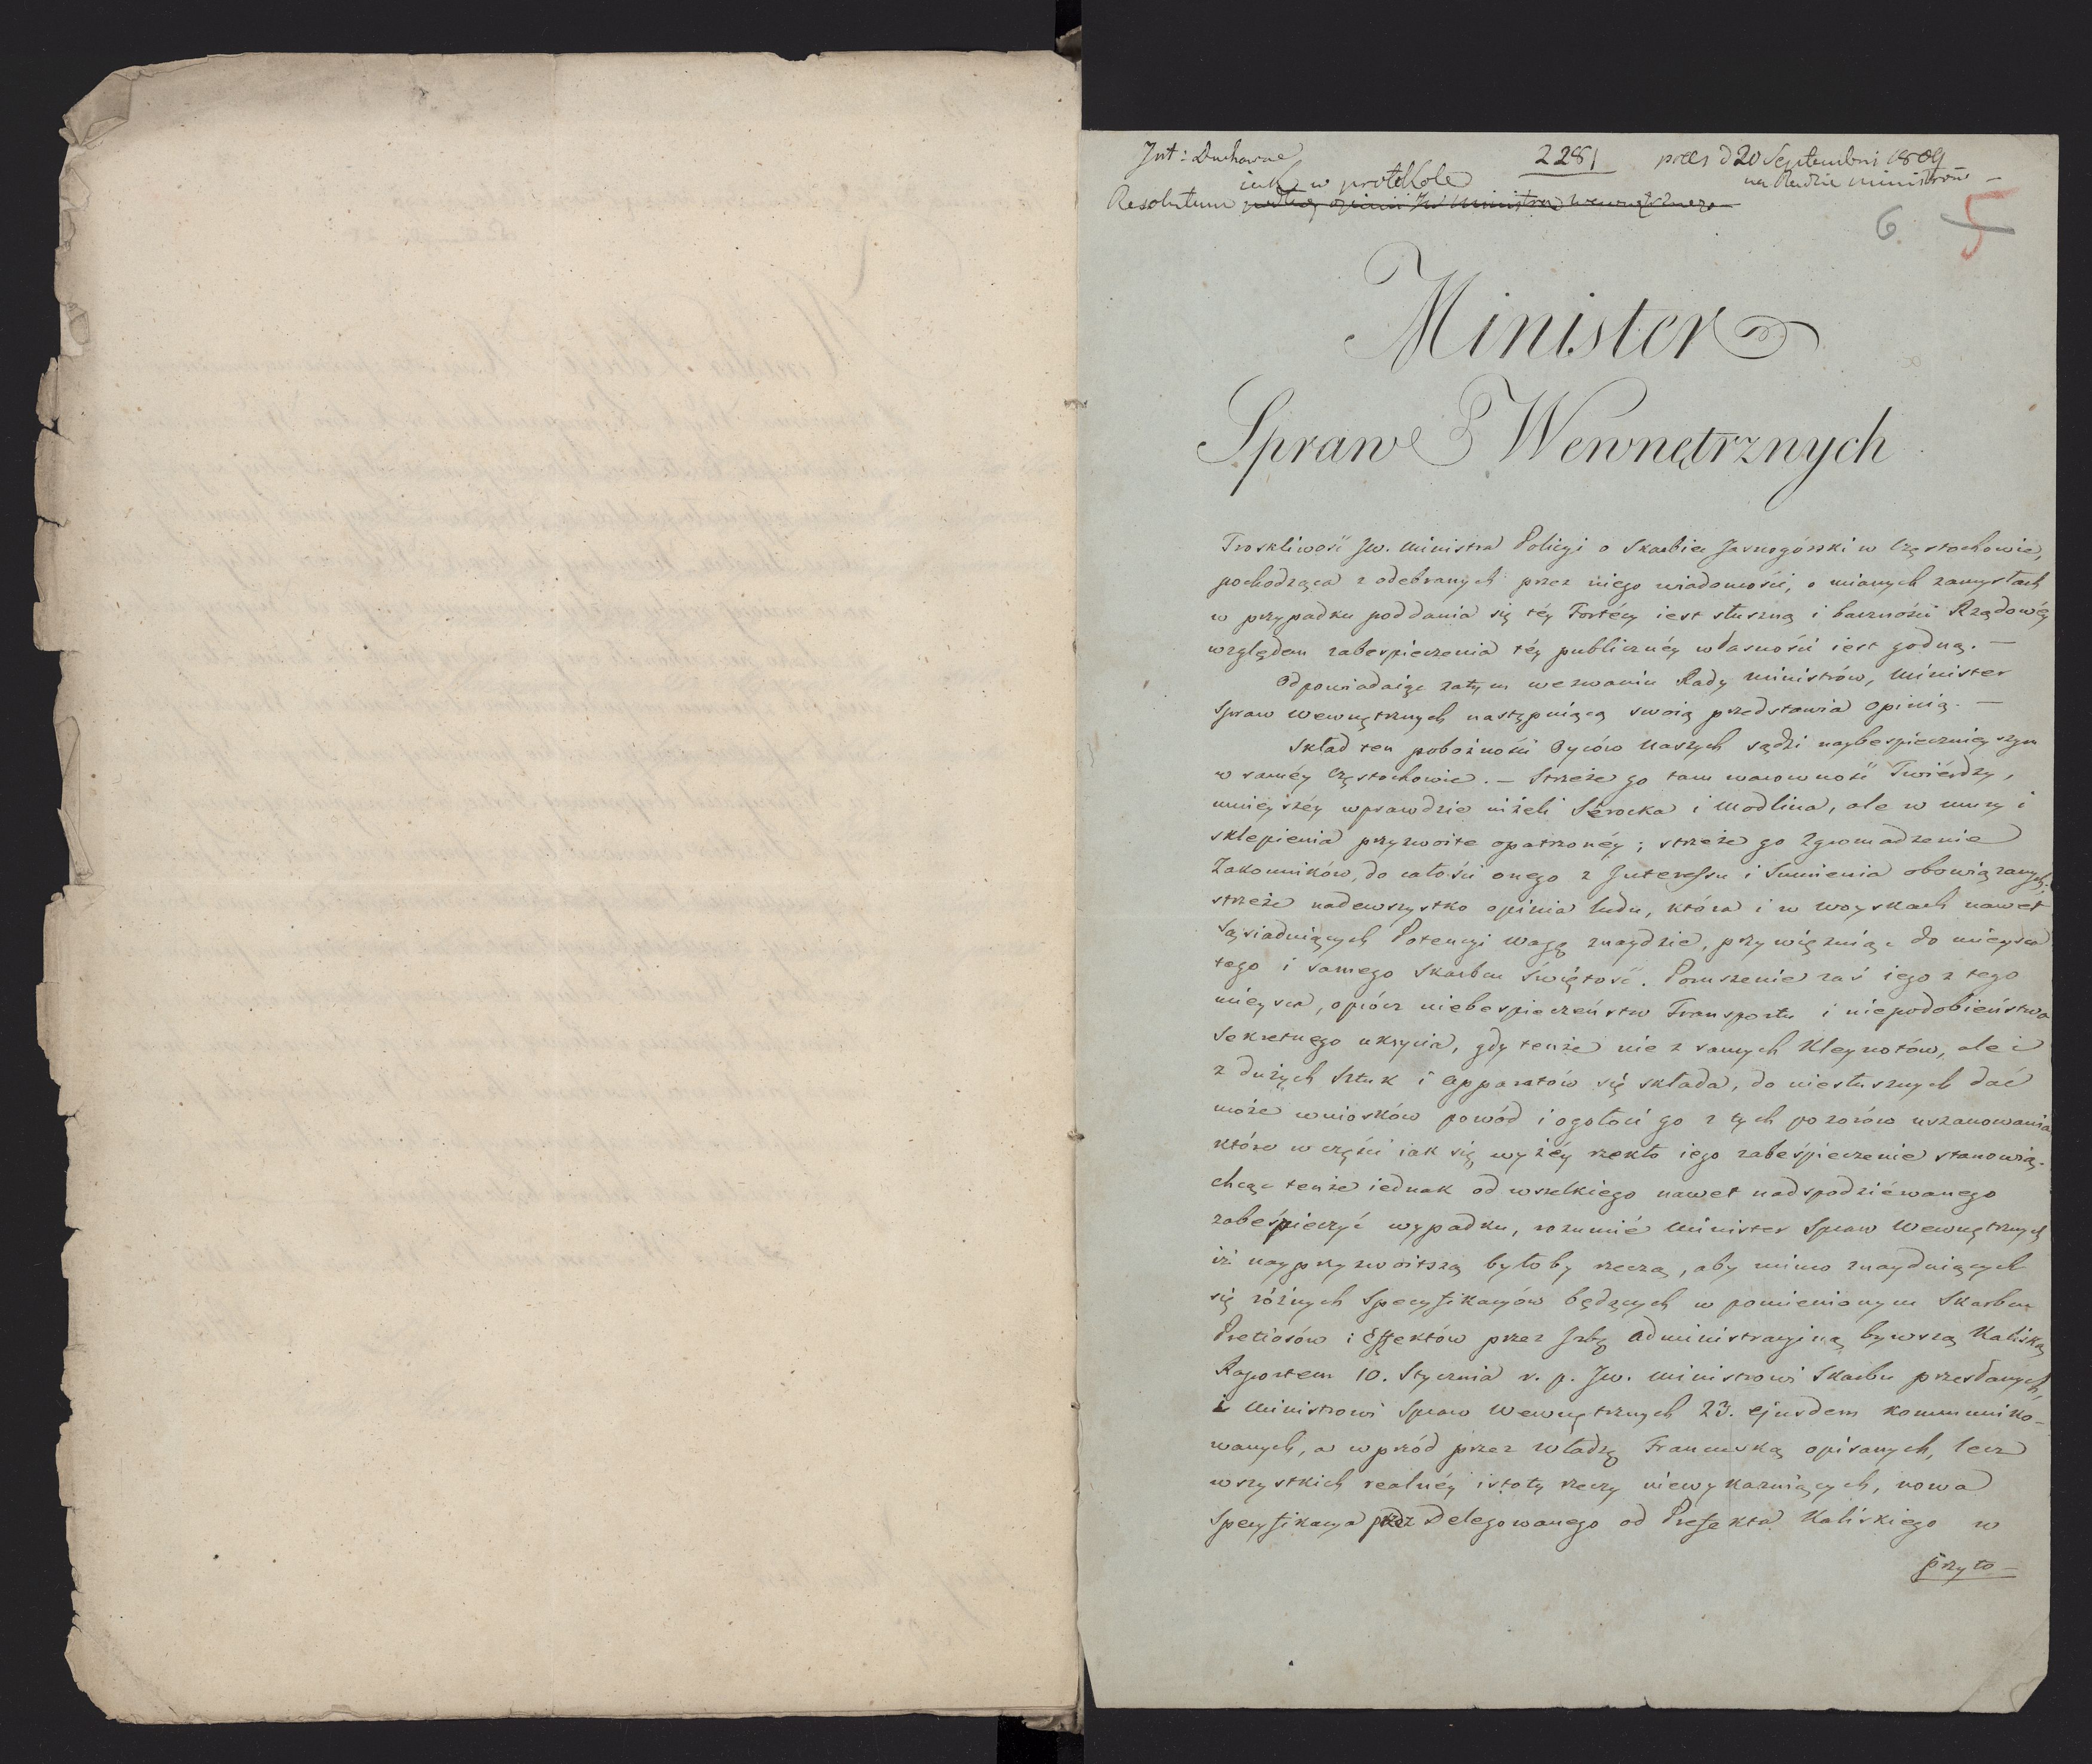 Int: Duchowne
2281
praes d 20 Septembri 1809
na Radzie ministrów —
iak w protokole
Resolutum podług opinii JW Ministra wewnętrznego
6 5
Minister
Spraw Wewnętrznych
Troskliwość JW. Ministra Policyi o Skarbiec Jasnogórski w Częstochowie,
pochodząca z odebranych przez niego wiadomości, o mianych zamysłach
w przypadku poddania się téy Fortécy iest słuszną i baczności Rządowéy
względem zabespieczenia téy publicznéy własności iest godną. —
Odpowiadaiąc zatym wezwaniu Rady Ministrów, Minister
Spraw Wewnętrznych następuiącą swoią przedstawia opinią. —
Skład ten pobożności Oyców naszych sądzi naybespiecznieyszym
w saméy Częstochowie. — Strzeże go tam warowność Twiérdzy,
mnieyszéy wprawdzie niżeli Serocka i Modlina, ale w mury i
sklepienia przyzwoite opatrzonéy; strzeże go Zgromadzenie
Zakonników, do całości onego z Interessu i Sumienia obowiązanych.
strzeże nadewszystko opinia ludu, która i w woyskach nawet
Sąsiaduiących Potencyi wagę znaydzie, przywięzuiąc do mieysca
tego i samego Skarbu świętość. Poruszenie zaś iego z tego
mieysca, oprócz niebespieczeństw Transportu i niepodobieństwa
Sekretnego ukrycia, gdy tenże nie z samych Kleynotów, ale i
z dużych Sztuk i apparatów się składa, do niesłusznych dać
może wniosków powód i ogołoci go z tych pozorów uszanowania
które w części iak się wyżéy rzekło iego zabéśpieczenie stanowią.
chcąc tenże iednak od wszelkiego nawet nadspodziéwanego
zabéśpieczyć wypadku, rozumié Minister Spraw Wewnętrznych
iż nayprzyzwoitszą byłoby rzeczą, aby mimo znayduiących
się różnych Specyfikacyów będących w pomienionym Skarbcu
Pretiosów i Effektów przez Izbę administracyiną bywszą Kaliską
Raportem 10. Stycznia r. p. JW. Ministrowi Skarbu przesłanych,
i Ministrowi Spraw Wewnętrznych 23. ejusdem kommuniko-
wanych, a wprzód przez Władzę Francuską opisanych, lecz
wszystkich realnéy istoty rzeczy niewykazuiących, nowa
Specyfikacya przez Delegowanego od Prefekta Kaliskiego w
przyto-